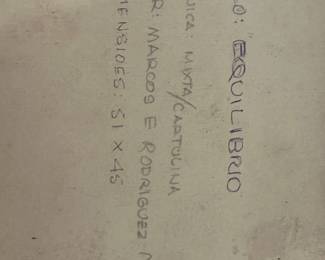 O: EQUILIBRIO
NICA: MIXTA/CARTULINA
R: MARCOS E RODRIGUEZ
MENSIOES: 51 X 45